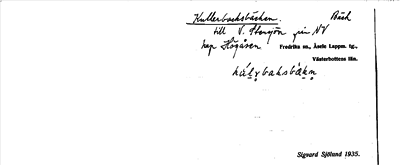 Kullerbacksbäcken. Bäck
till V. Stensjön från NV
kap Högåsen Fredrika sn., Åsele Lappm. tg.,
Västerbottens län.
Sigvard Sjölund 1935.